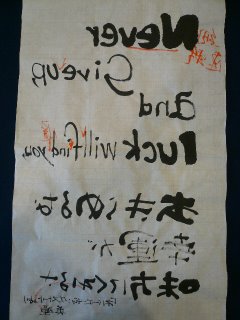 Never
Give up,
and
Luck will find you.
あきらめるな
幸運が
味方してくれるさ